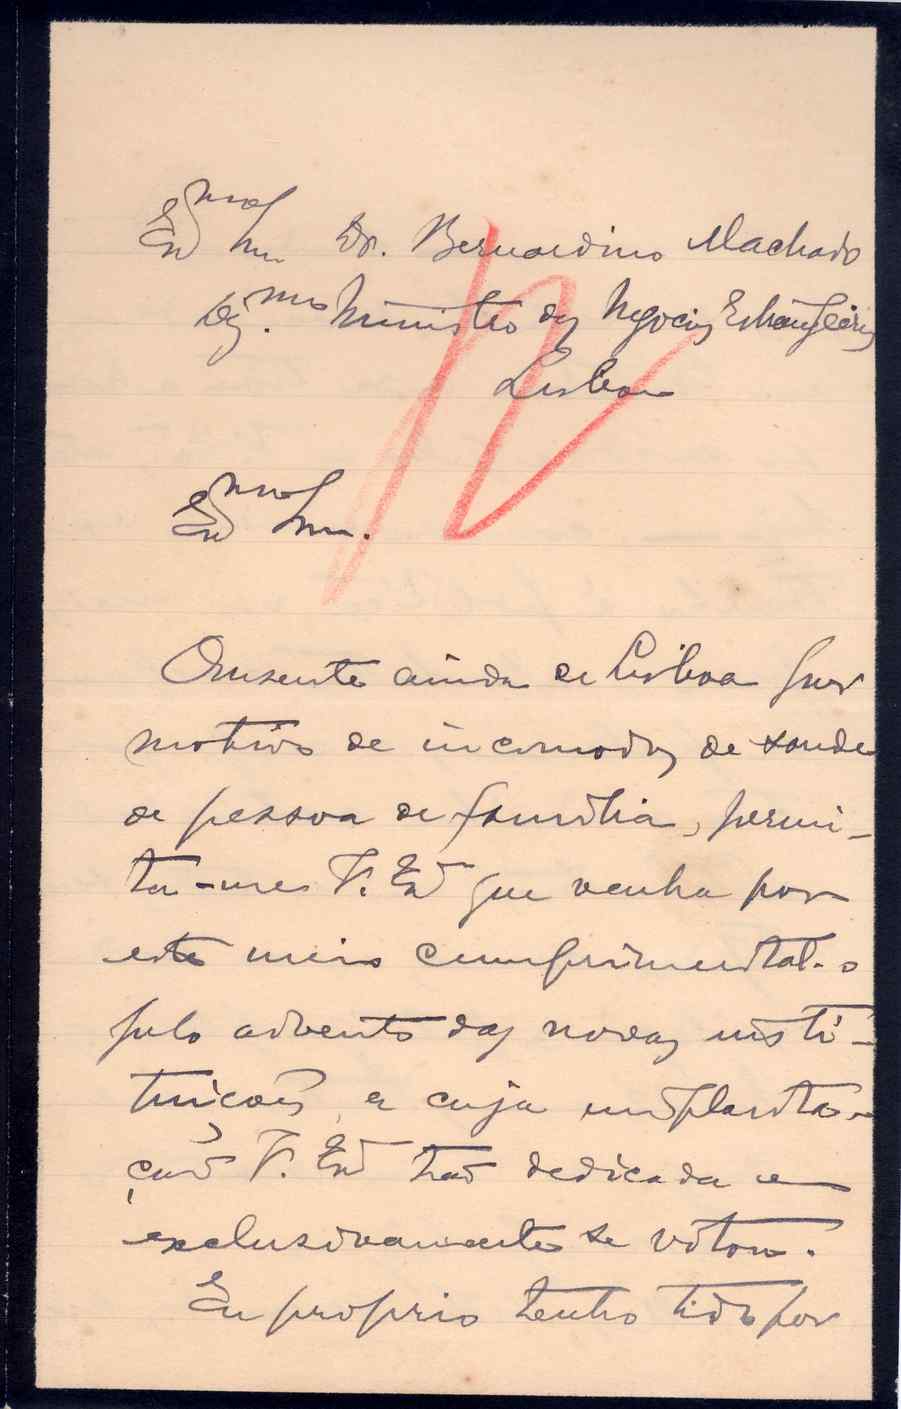 Exmo Snr. Dr. Bernardino Machado
Dig.mo Ministro dos Negocios Estrangeiros
Lisboa
R
Exmo Snr.
Ausente ainda de Lisboa por
motivo de incomodos de saude
de pessoa de familia, permi-
ta-me V. Exª que venha por
este meio cumprimental-o
pelo advento das novas insti-
tuições, a cuja implanta-
ção V. Exª tão dedicada e
exclusivamente se votou.
Eu proprio tenho tido por